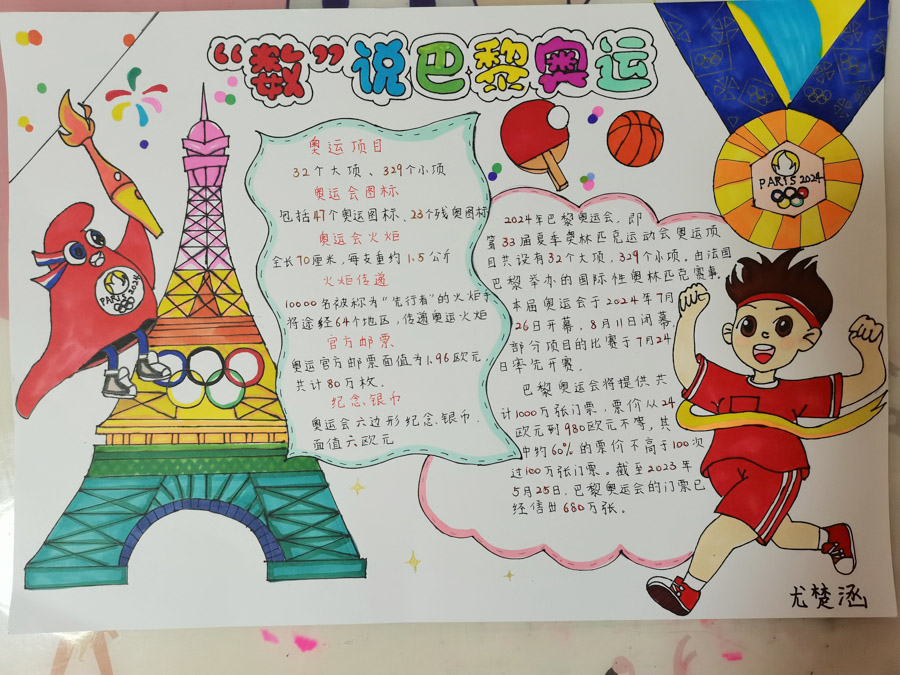 “数”说巴黎奥运
奥运项目
32个大项、329个小项
奥运会图标
包括47个奥运图标、23个残奥图标
奥运会火炬
全长70厘米,每支重约1.5公斤
火炬传递
10000名被称为“先行者”的火炬手
将途经64个地区,传递奥运火炬
官方邮票
奥运官方邮票面值为1.96欧元,
共计80万枚.
纪念银币
奥运会六边形纪念银币,
面值六欧元
2024年巴黎奥运会,即
第33届夏季奥林匹克运动会奥运项
目共设有32个大项,329个小项。由法国
巴黎举办的国际性奥林匹克赛事.
本届奥运会于2024年7月
26日开幕,8月11日闭幕,
部分项目的比赛于7月24
日率先开赛.
巴黎奥运会将提供共
计1000万张门票,票价从24
欧元到980欧元不等,其
中约60%的票价不高于100欠
过100万张门票。截至2023年
5月25日,巴黎奥运会的门票已
经售出680万张。
PARIS 2024
PARIS 2024
尤楚涵